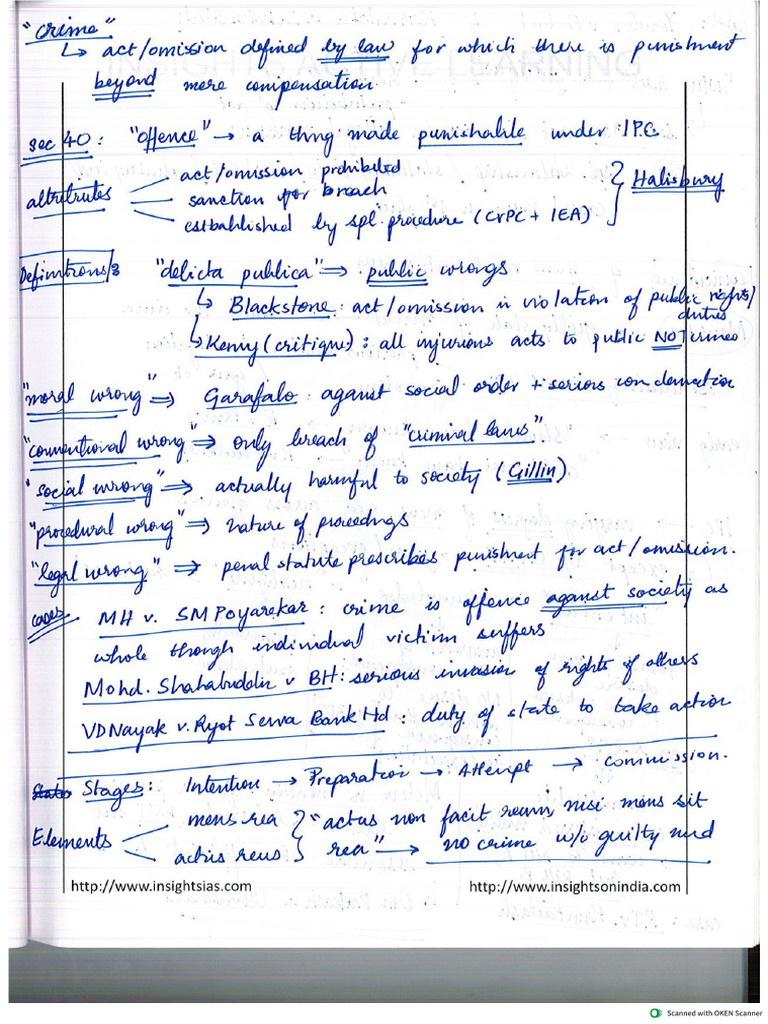 "crime"
↳ act/omission defined by law for which there is punishment
beyond mere compensation.
Sec 40: "offence" → a thing made punishable under IPC
attributes
act/omission prohibited
sanction for breach
established by spl. procedure (CrPC + IEA)
} Halisbury
Definitions/3 "delicta publica" ⇒ public wrongs
↳ Blackstone: act/omission in violation of public rights/
duties
↳ Kenny (critique): all injurious acts to public NOT crimes
"moral wrong" ⇒ Garafalo: against social order + serious condemnation
"conventional wrong" ⇒ only breach of "criminal laws".
"social wrong" ⇒ actually harmful to society (Gillin)
"procedural wrong" ⇒ nature of proceedings
"legal wrong" ⇒ penal statute prescribes punishment for act/omission.
cases MH v. SM Poyarekar: crime is offence against society as
whole though individual victim suffers
Mohd. Shahabuddin v BH: serious invasion of rights of others
VD Nayak v. Ryot Serva Bank Hd: duty of state to take action
Stages: Intention → Preparation → Attempt → commission.
Elements
mens rea
actus reus
} "actus non facit reum nisi mens sit
rea" → no crime w/o guilty mind
http://www.insightsias.com http://www.insightsonindia.com
Scanned with OKEN Scanner